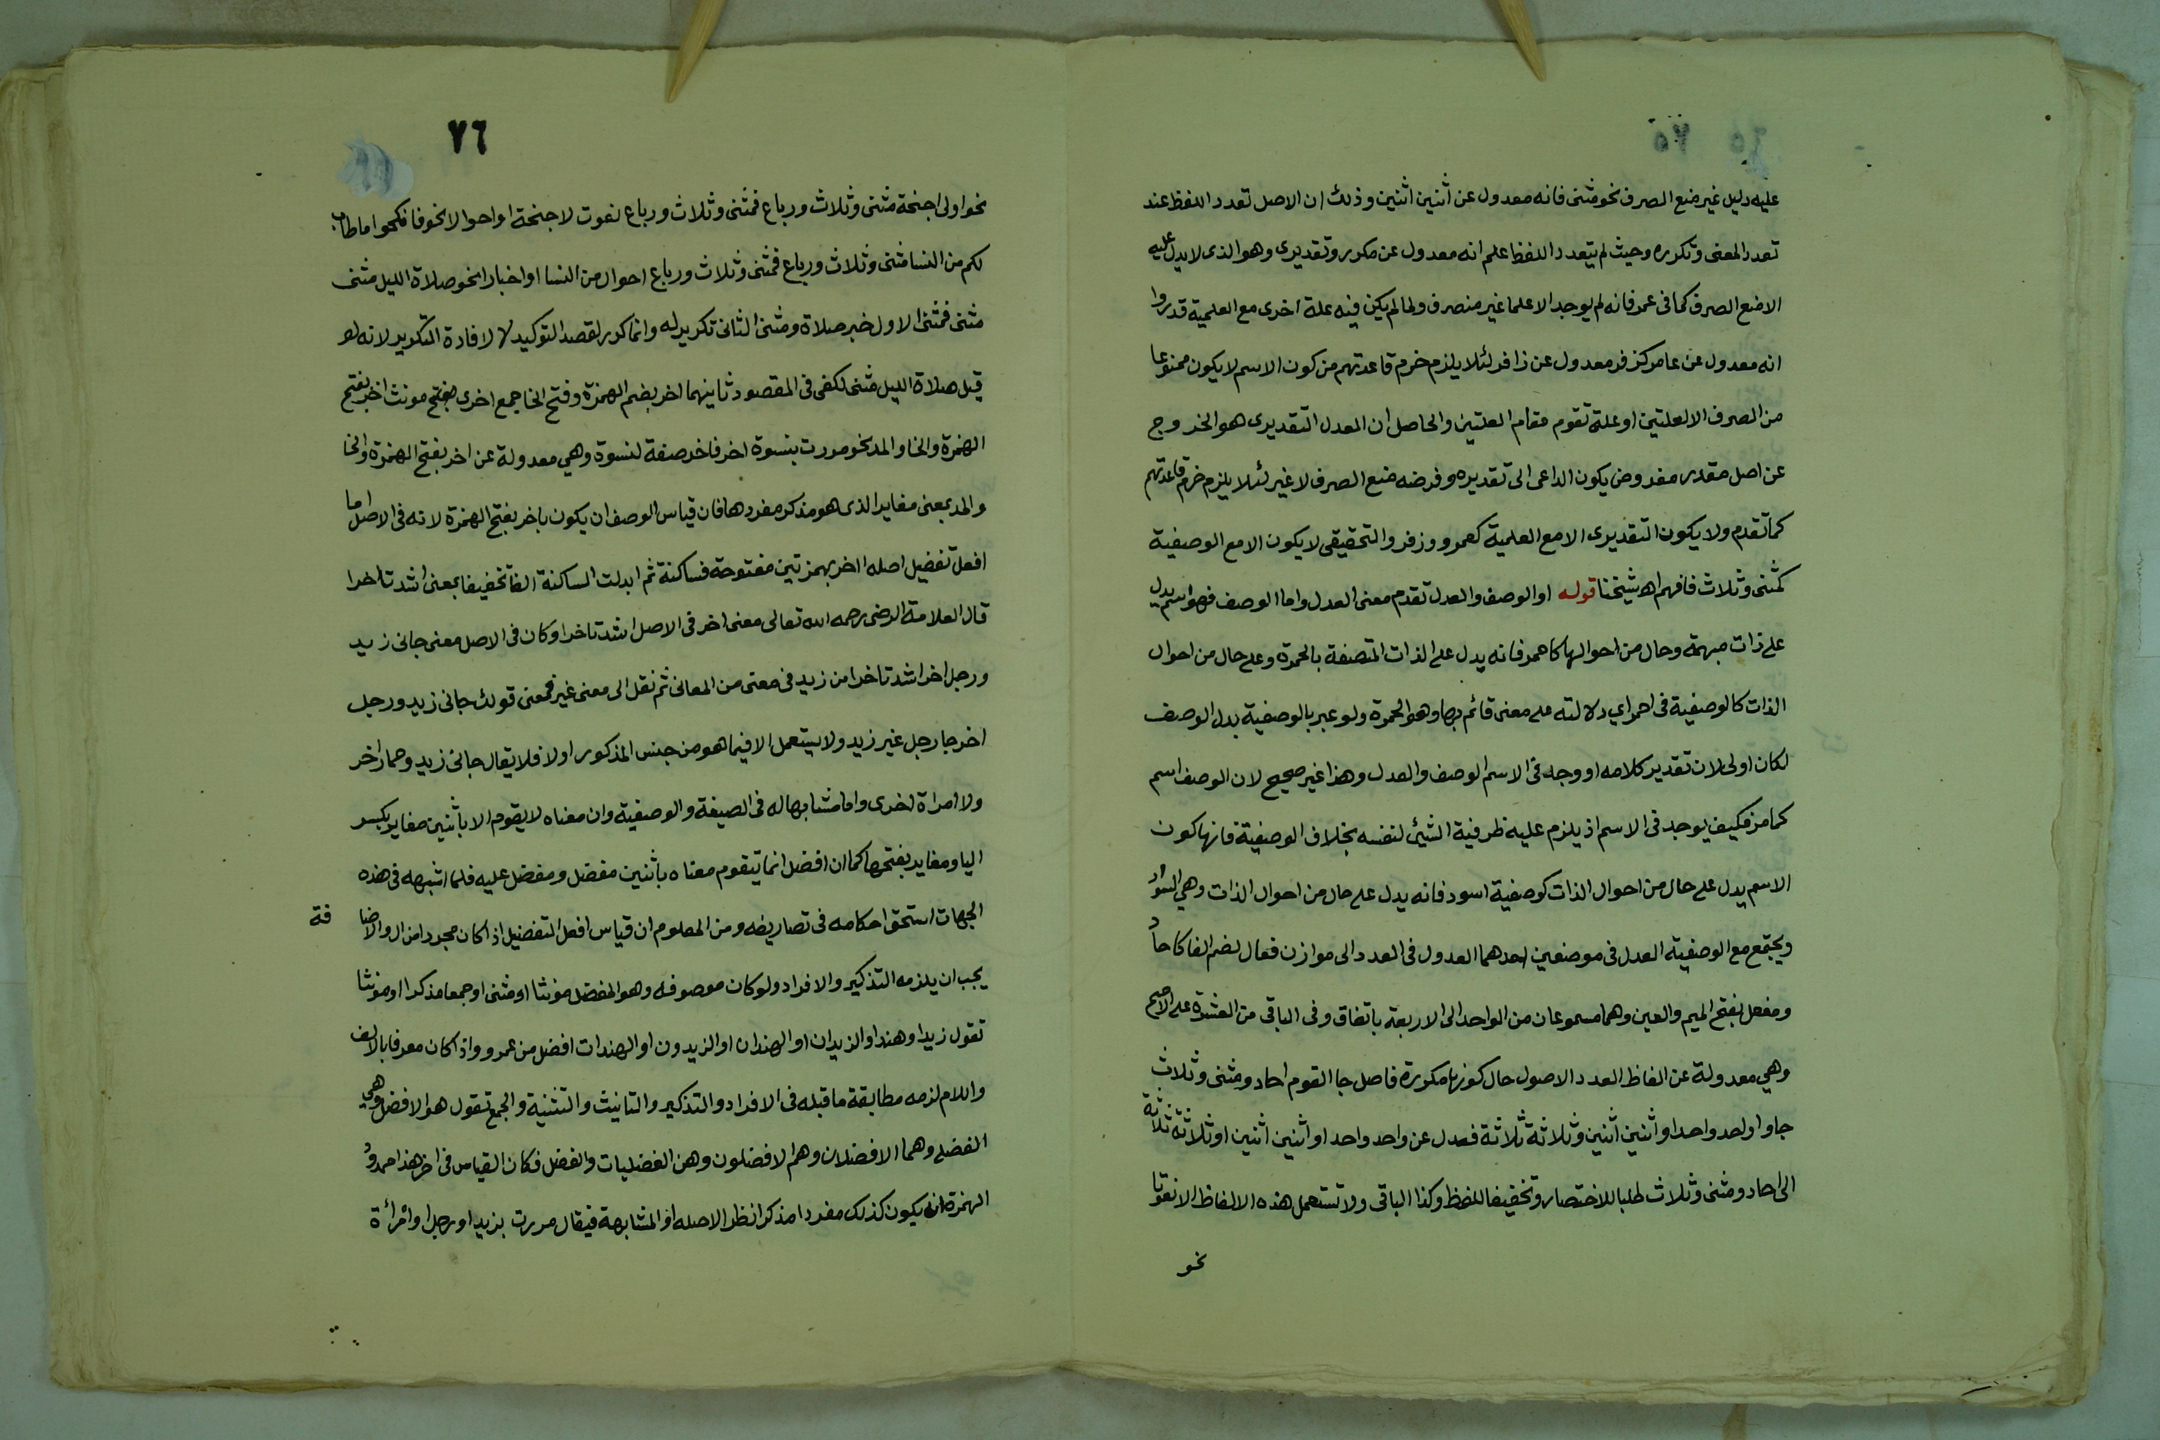 ٧٥
عليه دليل غير منع الصرف نحو مثنى فانه معدول عن أثنين اثنين وذلك ان الاصل تعدد اللفظ عند
تعدد المعنى وتكرره وحيث لم يتعدد اللفظ علم انه معدول عن مكرر وتقديرى وهو الذى لا يدل عليه
الا منع الصرف كما فى عمر فانه لم يوجد الا علما غير منصرف ولما لم يكن فيه علة اخرى مع العلمية قدروا
انه معدول عن عامر كزفر معدول عن زافر لئلا يلزم خرم قاعدتهم من كون الاسم لا يكون ممنوعا
من الصرف الا لعلتين او علة تقوم مقام العلتين والحاصل ان العدل التقديرى هو الخروج
عن اصل مقدر مفروض يكون الداعى الى تقديره وفرضه منع الصرف لا غير لئلا يلزم خرم قاعدتهم
كما تقدم ولا يكون التقديرى الا مع العلمية كعمر وزفر والتحقيقى لا يكون الا مع الوصفية
كمثنى وثلاث فافهم اه شيخنا قوله او الوصف والعدل تقدم معنى العدل واما الوصف فهو اسم يدل
على ذات مبهمة وحال من احوالها كاحمر فانه يدل على الذات المتصفة بالحمرة وعلى حال من احوال
الذات كالوصفية فى احمر اي دلالته على معنى قائم بها وهو الحمرة ولو عبر بالوصفية بدل الوصف
لكان اولى لان تقدير كلامه او وجد فى الاسم الوصف والعدل وهذا غير صحيح لان الوصف اسم
كما مر فكيف يوجد فى الاسم اذ يلزم عليه ظرفية الشئ لنفسه بخلاف الوصفية فانها كون
الاسم يدل على حال من احوال الذات كوصفية اسود فانه يدل على حال من احوال الذات وهي السواد
ويجتمع مع الوصفية العدل فى موضعين احدهما العدول فى العدد الى موازن فعال بضم الفا كاحاد
ومفعل بفتح الميم والعين وهما مسموعان من الواحد الى الاربعة باتفاق وفى الباقى من العشرة على الاصح
وهي معدولة عن الفاظ العدد الاصول حال كونها مكررة فاصل جا القوم احاد ومثنى وثلاث
جاوا واحد واحد او أثنين أثنين وثلاثة ثلاثة فعدل عن واحد واحد او اثنين اثنين او ثلاثة ثلاثة
الى احاد ومثنى وثلاث طلبا للاختصار وتخفيفا للفظ وكذا الباقى ولا تستعمل هذه الالفاظ الا نعوتا
نحو
٧٦
نحو اولى اجنحة مثنى وثلاث ورباع فمثنى وثلاث ورباع نعوت لاجنحة او احوالا نحو فانكحوا ما طاب
لكم من النسا مثنى وثلاث ورباع فمثنى وثلاث ورباع احوال من النسا او اخبارا نحو صلاة الليل مثنى
مثنى فمثنى الاول خبر صلاة ومثنى الثانى تكرير له وانما كرر لقصد التوكيد لا لافادة التكرير لانه لو
قيل صلاة الليل مثنى لكفى فى المقصود ثانيهما اخر بضم الهمزة وفتح الخا جمع اخرى مونث اخر بفتح
الهمزة والخا والمد نحو مررت بنسوة اخر فاخر صفة لنسوة وهي معدولة عن اخر بفتح الهمزة والخا
والمد بمعنى مغاير الذى هو مذكر مفردها فان قياس الوصف ان يكون باخر بفتح الهمزة لانه فى الاصل اما
افعل تفضيل اصله ااخر بهمزتين مفتوحة فساكنة ثم ابدلت الساكنة الفا تخفيفا بمعنى اشد تاخرا
قال العلامة الرضى رحمه الله تعالى معنى اخر فى الاصل اشد تاخرا وكان فى الاصل معنى جانى زيد
ورجل اخر اشد تاخرا من زيد فى معنى من المعانى ثم نقل الى معنى غير فمعنى قولك جانى زيد ورجل
اخر جا رجل غير زيد ولا يستعمل الا فيما هو من جنس المذكور اولا فلا يقال جانى زيد وحمار اخر
ولا امراة اخرى واما مشابها له فى الصيغة والوصفية وان معناه لا يقوم الا باثنين مغاير بكسر
اليا ومغاير بفتحها كما ان افضل انما يتقوم معناه باثنين مفضل ومفضل عليه فلما اشبهه فى هذه
الجهات استحق احكامه فى تصاريفه ومن المعلوم ان قياس افعل التفضيل اذا كان مجردا من ال والاضافة
يجب ان يلزمه التذكير والافراد ولو كان موصوفه وهو المفضل مونثا او مثنى او جمعا مذكرا او مونثا
تقول زيد او هند او الزيدان او الهندان او الزيدون او الهندات افضل من عمرو واذا كان معرفا بالالف
واللام لزمه مطابقة ما قبله فى الافراد والتذكير والتانيث والتثنية والجمع تقول هو الافضل وهي
الفضلى وهما الافضلان وهم الافضلون وهن الفضليات والفضل فكان القياس فى اخر هذا ممدود
الهمزة ان يكون كذلك مفردا مذكرا نظرا لاصله او المشابهة فيقال مررت بزيد او رجل او امرأة